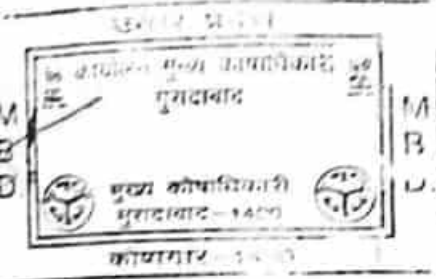 उत्तर प्रदेश
कार्यालय मुख्य कोषाधिकारी
मुरादाबाद
M B D
M B D
मुख्य कोषाधिकारी
मुरादाबाद-1400
कोषागार